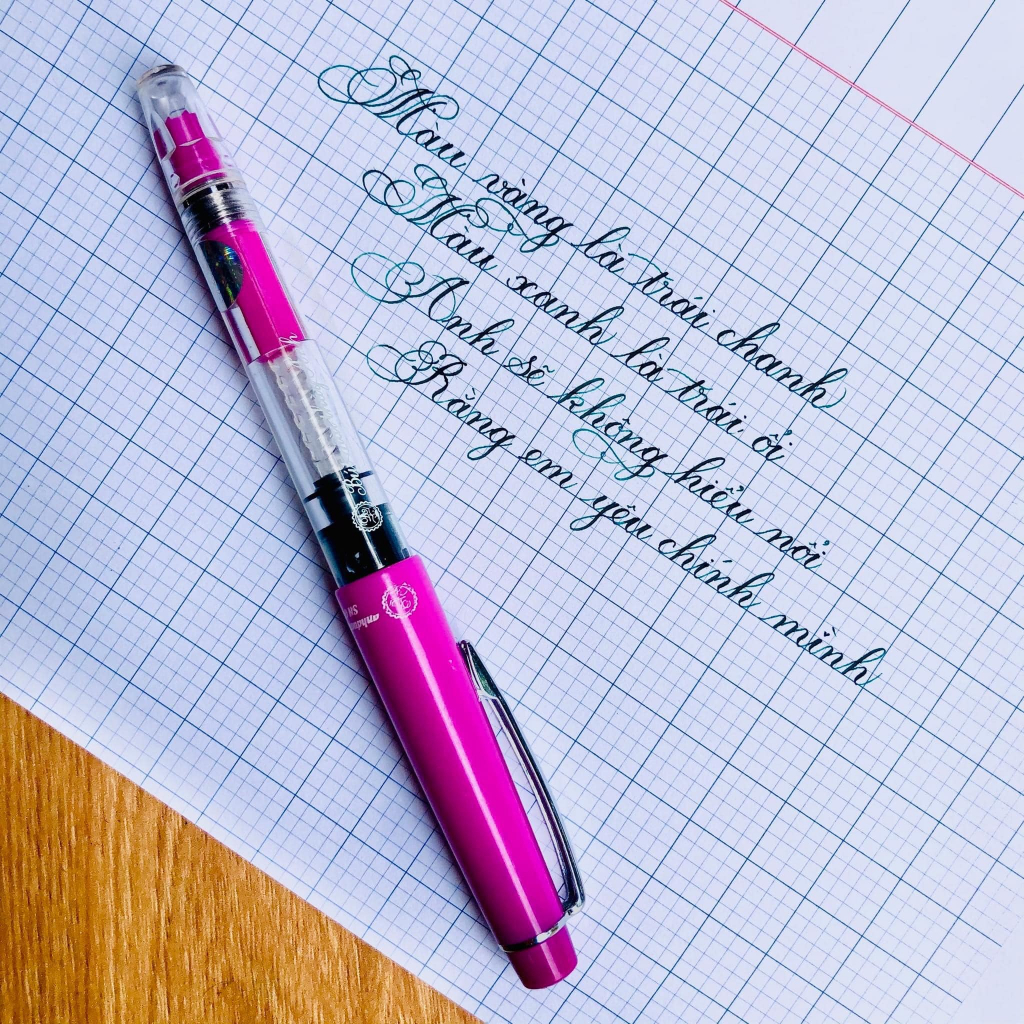 Màu vàng là trái chanh
Màu xanh là trái ổi
Anh sẽ không hiểu nổi
Rằng em yêu chính mình